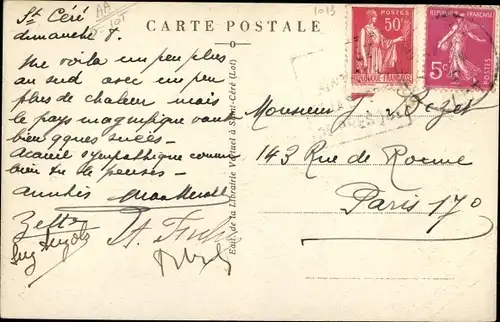 St Céré
AA
1013
CARTE POSTALE
dimanche 8.
Me voilà un peu plus
au sud avec un peu
plus de chaleur mais
le pays magnifique vaut
bien qques suées –
Accueil sympathique comme
bien tu le penses –
amitiés
Edit. de la Librairie Vertuel à Saint-Céré (Lot)
POSTES
50c
REPUBLIQUE FRANÇAISE
REPUBLIQUE FRANÇAISE
5c
POSTES
Monsieur J.
143 Rue de Rome
Paris 17o